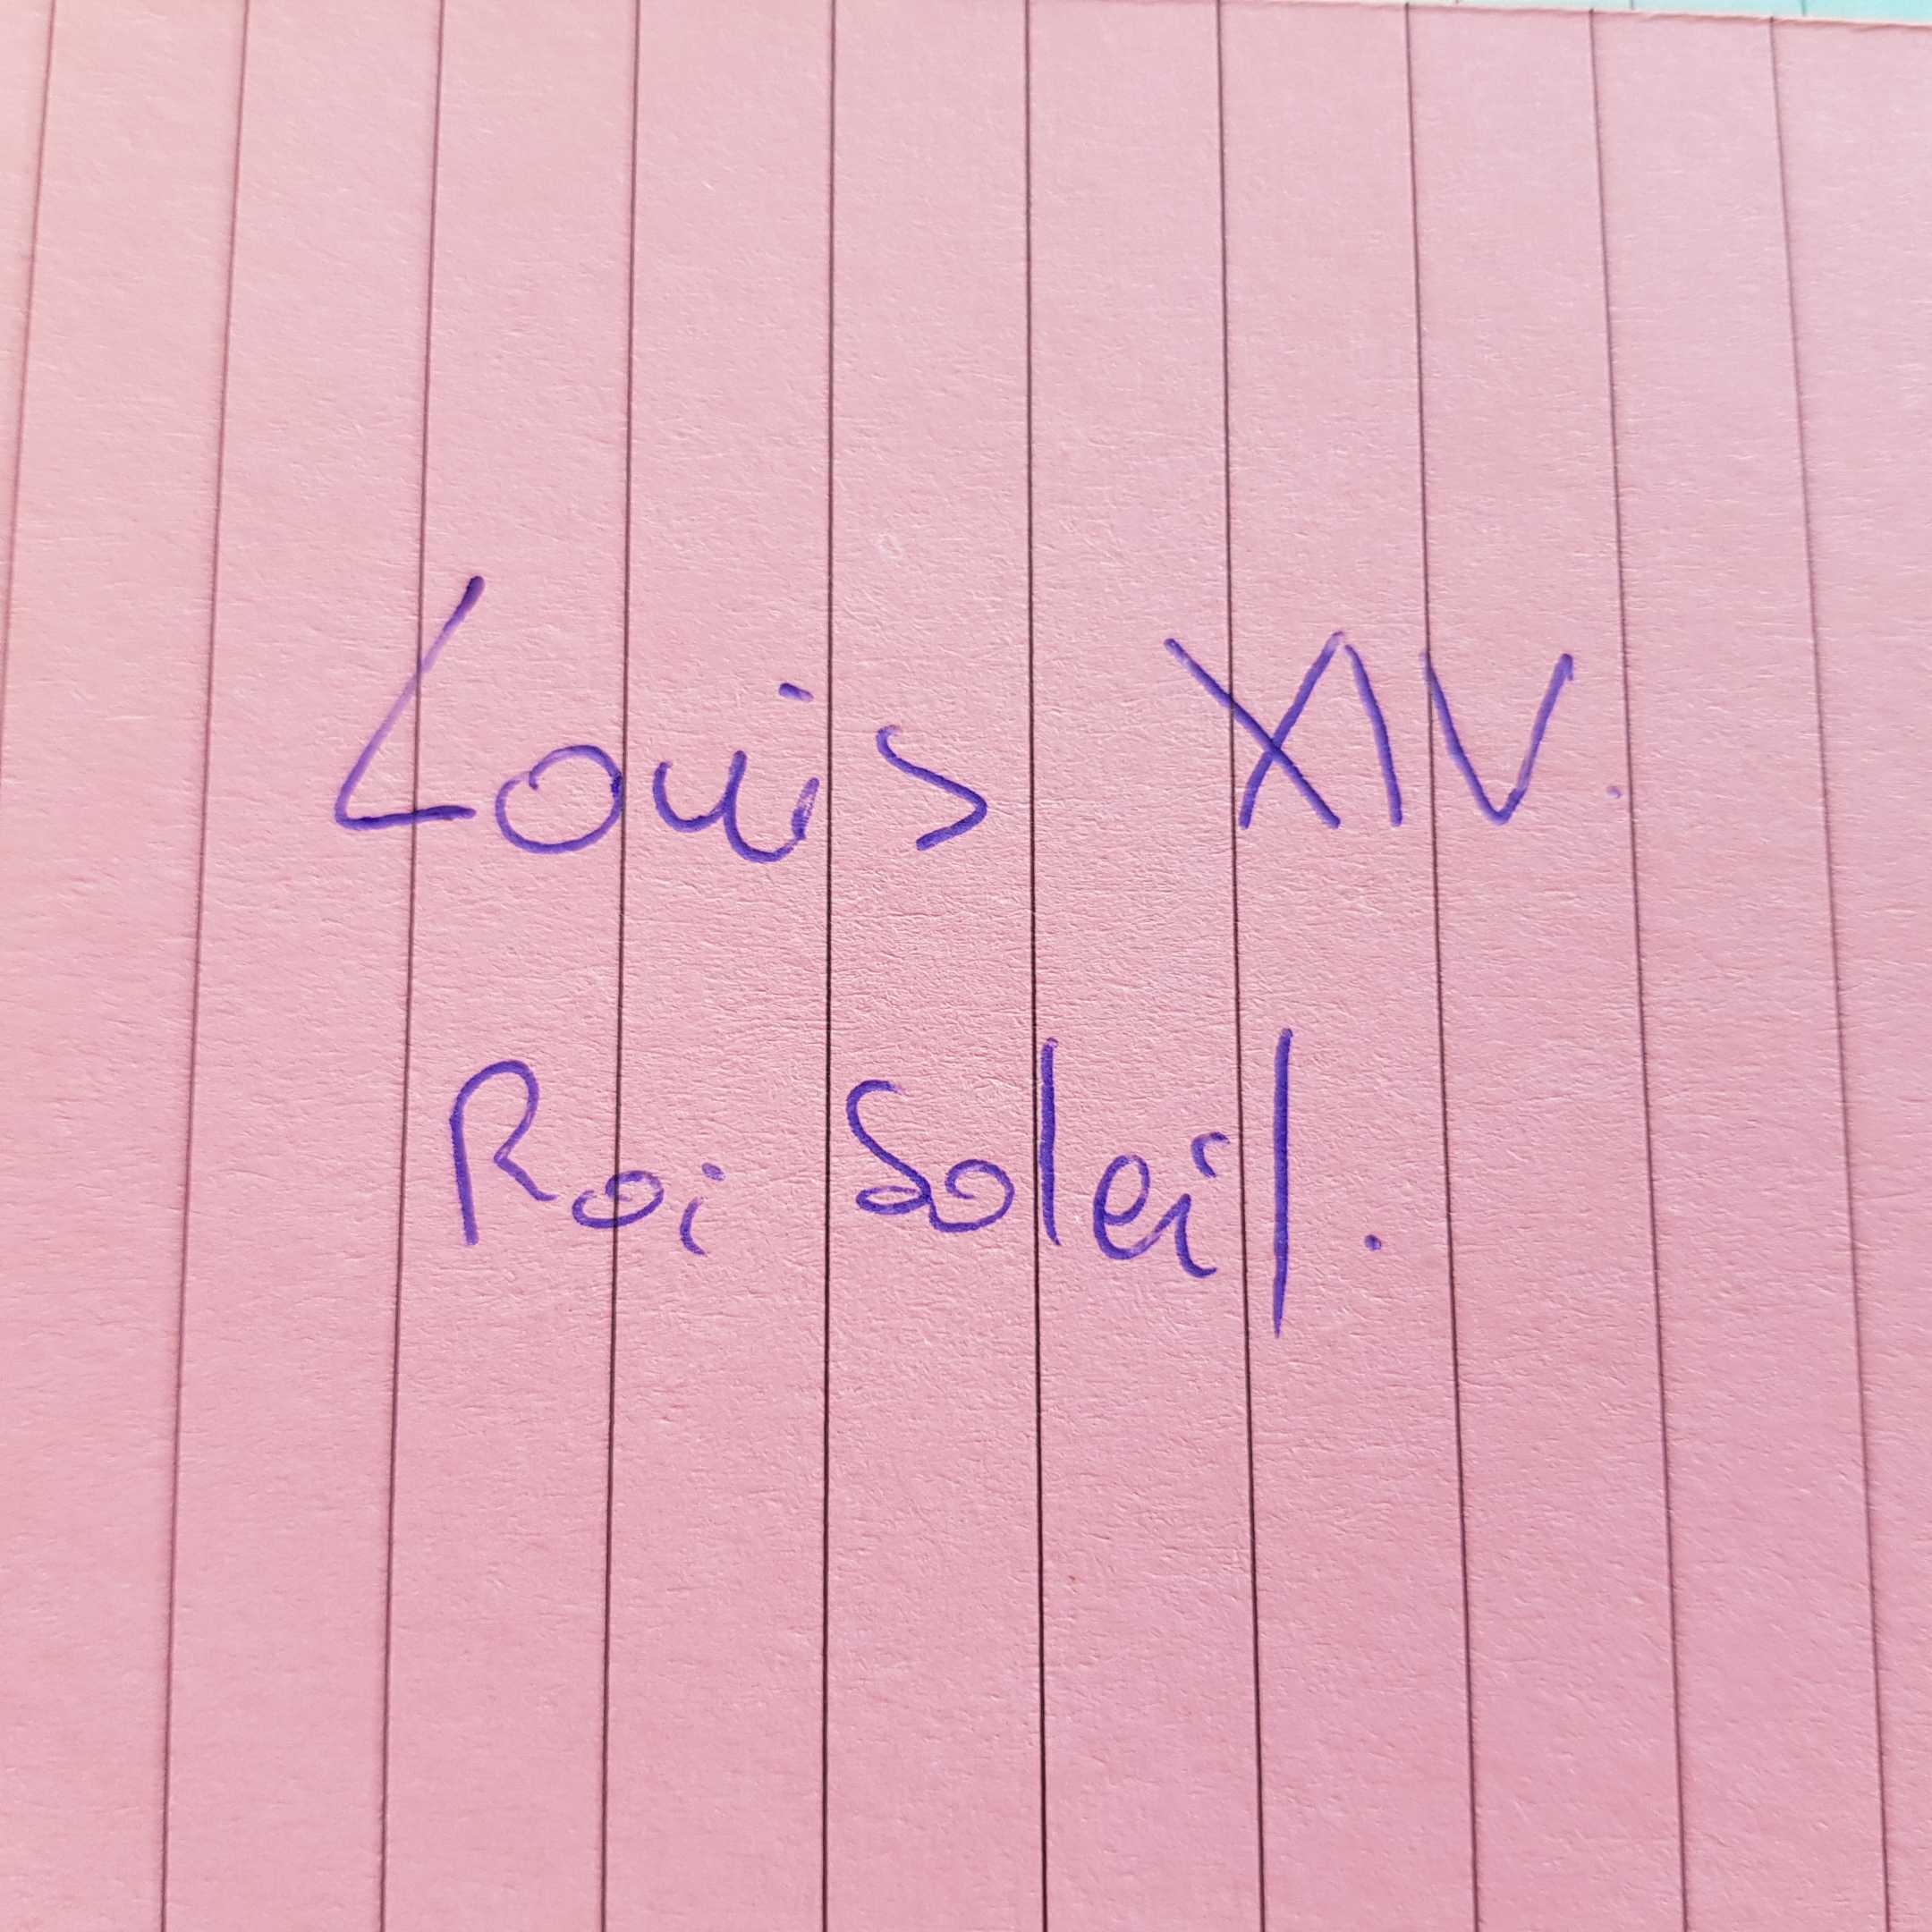 Louis XIV.
Roi Soleil.